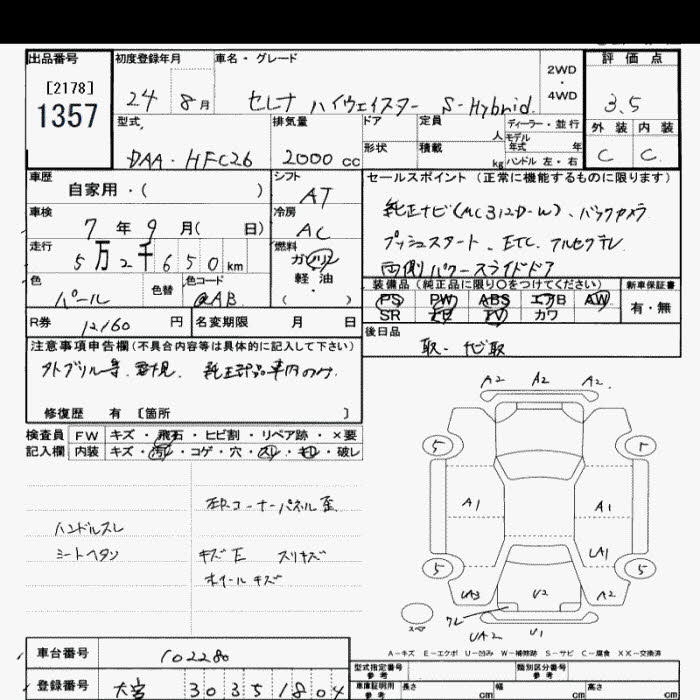 出品番号
[2178]
1357
初度登録年月
24 8月
車名・グレード
セレナ ハイウェイスター S-Hybrid
2WD
・
4WD
評価点
3.5
外装 内装
C C
型式
DAA-HFC26
排気量
2000 cc
ドア
形状
定員
人
積載
kg
ディーラー・並行
モデル
年式 年
ハンドル 左・右
車歴
自家用・( )
シフト
AT
車検
7年 9月( 日)
冷房
AC
走行
5万2千650km
燃料
ガソリン
軽油
( )
色
パール
色替
色コード
QAB
R券
12160 円
名変期限 月 日
セールスポイント (正常に機能するものに限ります)
純正ナビ(MC312D-W)、バックカメラ
プッシュスタート、ETC、
両側パワースライドドア
装備品(純正品に限り〇をつけてください)
PS PW ABS エアB AW
SR TV カワ
新車保証書
有・無
後日品
取・ナビ取
注意事項申告欄(不具合内容等は具体的に記入して下さい)
純正部品車内のみ
修復歴 有 [箇所 ]
検査員
記入欄
FW キズ・飛石・ヒビ割・リペア跡・×要
内装 キズ・汚れ・コゲ・穴・スレ・・破レ
ハンドルスレ
シートヘタリ
左Rコーナーパネル歪
キズE スリキズ
ホイールキズ
A2 A2 A2
5 5
A1 A1
UA1
5 5
UA3 U2 A2
ワレ
スペア
UA2 U1
A－キズ E－エクボ U－凹み W－補修跡 S－サビ C－腐食 XX－交換済
車台番号
102280
登録番号
大宮 303 51804
型式指定番号
参考
類別区分番号
参考
車庫証明用
参考
長さ cm 幅 cm 高さ cm